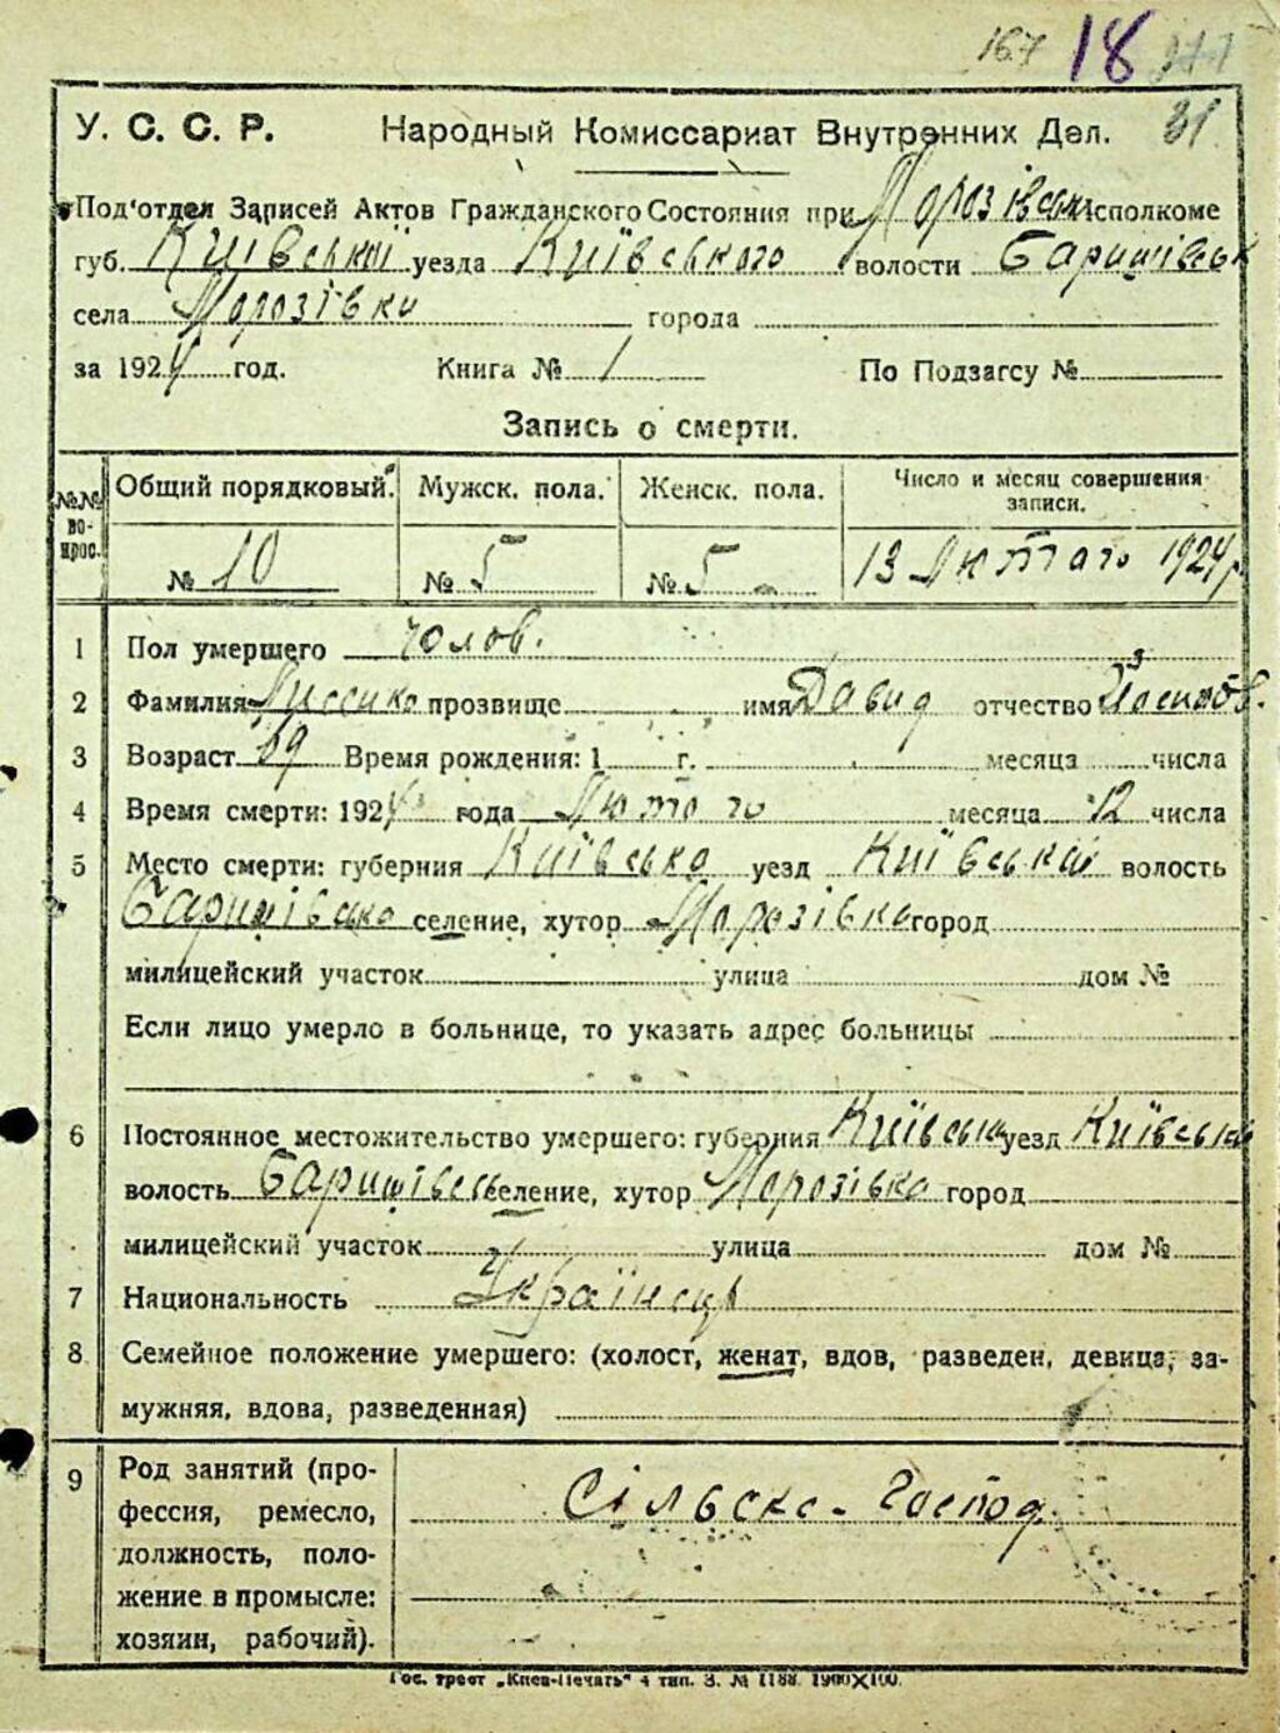 167 18
У. С. С. Р. Народный Комиссариат Внутренних Дел. 31
Под'отдел Записей Актов Гражданского Состояния при Морозівськ. Исполкоме
губ. Київської уезда Київського волости Баришівськ
села Морозівки города
за 1924 год. Книга № 1 По Подзагсу №
Запись о смерти.
№№ вопрос. Общий порядковый. Мужск. пола. Женск. пола. Число и месяц совершения записи.
№ 10 № 5 № 5 13 Лютого 1924 р.
1 Пол умершего Чолов.
2 Фамилия прозвище имя Давид отчество
3 Возраст Время рождения: 1 г. месяца числа
4 Время смерти: 1924 года Лютого месяца 12 числа
5 Место смерти: губерния Київська уезд Київський волость
Баришівська селение, хутор Морозівка город
милицейский участок улица дом №
Если лицо умерло в больнице, то указать адрес больницы
6 Постоянное местожительство умершего: губерния Київська уезд Київський
волость Баришівськ селение, хутор Морозівка город
милицейский участок улица дом №
7 Национальность Українець
8 Семейное положение умершего: (холост, женат, вдов, разведен, девица, за-
мужняя, вдова, разведенная)
9 Род занятий (про-
фессия, ремесло, Сільске-Господ.
должность, поло-
жение в промысле:
хозяин, рабочий).
Гос. трест „Киев-Печать" 4 тип. З. № 1188. 1900×100.